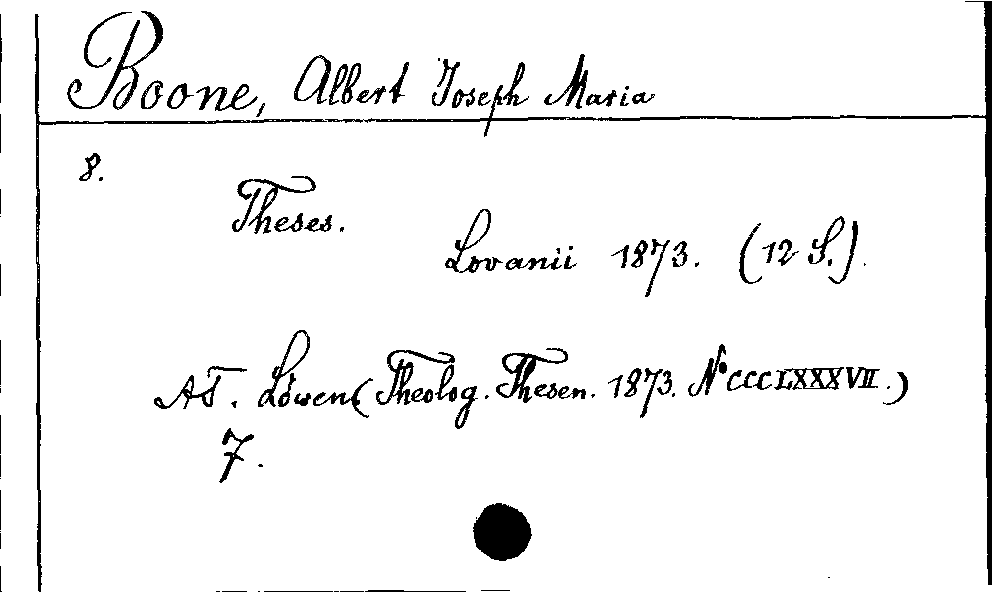 Boone, Albert Joseph Maria
8.
Theses.
Lovanii 1873. (12 S.)
AT. Löwen (Theolog. Thesen. 1873. No CCCLXXXVII.)
7.